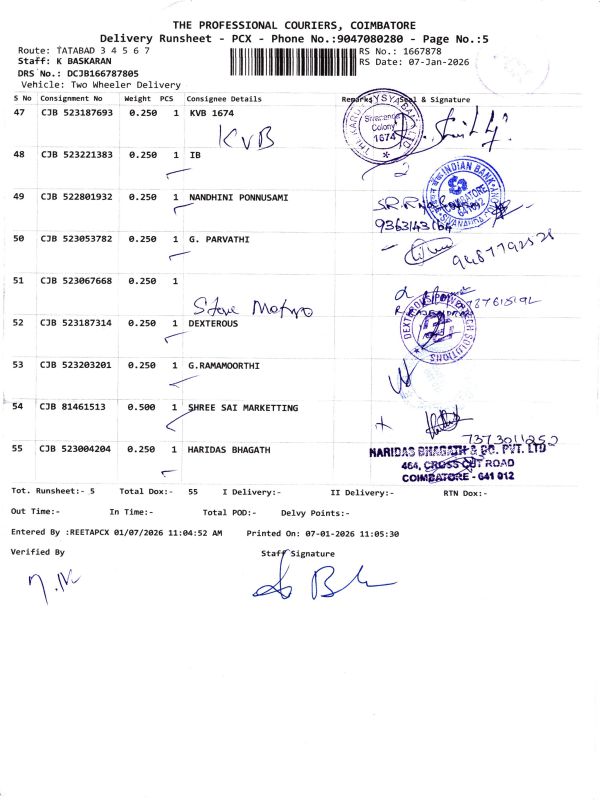 THE PROFESSIONAL COURIERS, COIMBATORE
Delivery Runsheet - PCX - Phone No.:9047080280 - Page No.:5
Route: TATABAD 3 4 5 6 7
RS No.: 1667878
Staff: K BASKARAN
RS Date: 07-Jan-2026
DRS No.: DCJB166787805
Vehicle: Two Wheeler Delivery
S No Consignment No Weight PCS Consignee Details Remarks /Seal & Signature
47 CJB 523187693 0.250 1 KVB 1674
KVB
Sivananda Colony 1674
48 CJB 523221383 0.250 1 IB
INDIAN BANK
COIMBATORE
49 CJB 522801932 0.250 1 NANDHINI PONNUSAMI
9363143164
50 CJB 523053782 0.250 1 G. PARVATHI
9487792528
51 CJB 523067668 0.250 1
Stove Metro
52 CJB 523187314 0.250 1 DEXTEROUS
53 CJB 523203201 0.250 1 G.RAMAMOORTHI
54 CJB 81461513 0.500 1 SHREE SAI MARKETTING
7373011252
55 CJB 523004204 0.250 1 HARIDAS BHAGATH
HARIDAS BHAGATH & CO. PVT. LTD
464, CROSS CUT ROAD
COIMBATORE - 641 012
Tot. Runsheet:- 5 Total Dox:- 55 I Delivery:- II Delivery:- RTN Dox:-
Out Time:- In Time:- Total POD:- Delvy Points:-
Entered By :REETAPCX 01/07/2026 11:04:52 AM Printed On: 07-01-2026 11:05:30
Verified By Staff Signature